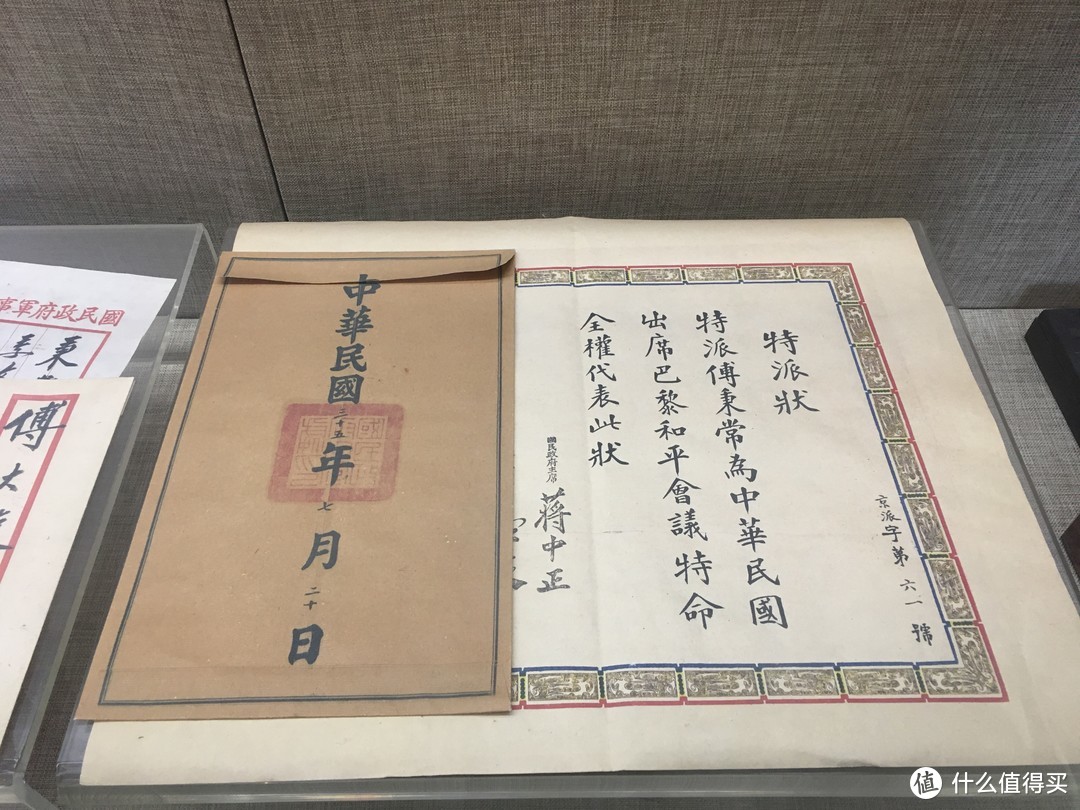 特派狀
特派傅秉常為中華民國
出席巴黎和平會議特命
全權代表此狀
國民政府主席
蔣中正
京派字第六一號
中華民國三十五年七月二十日
國民政府軍事
秉
傅大
值 什么值得买